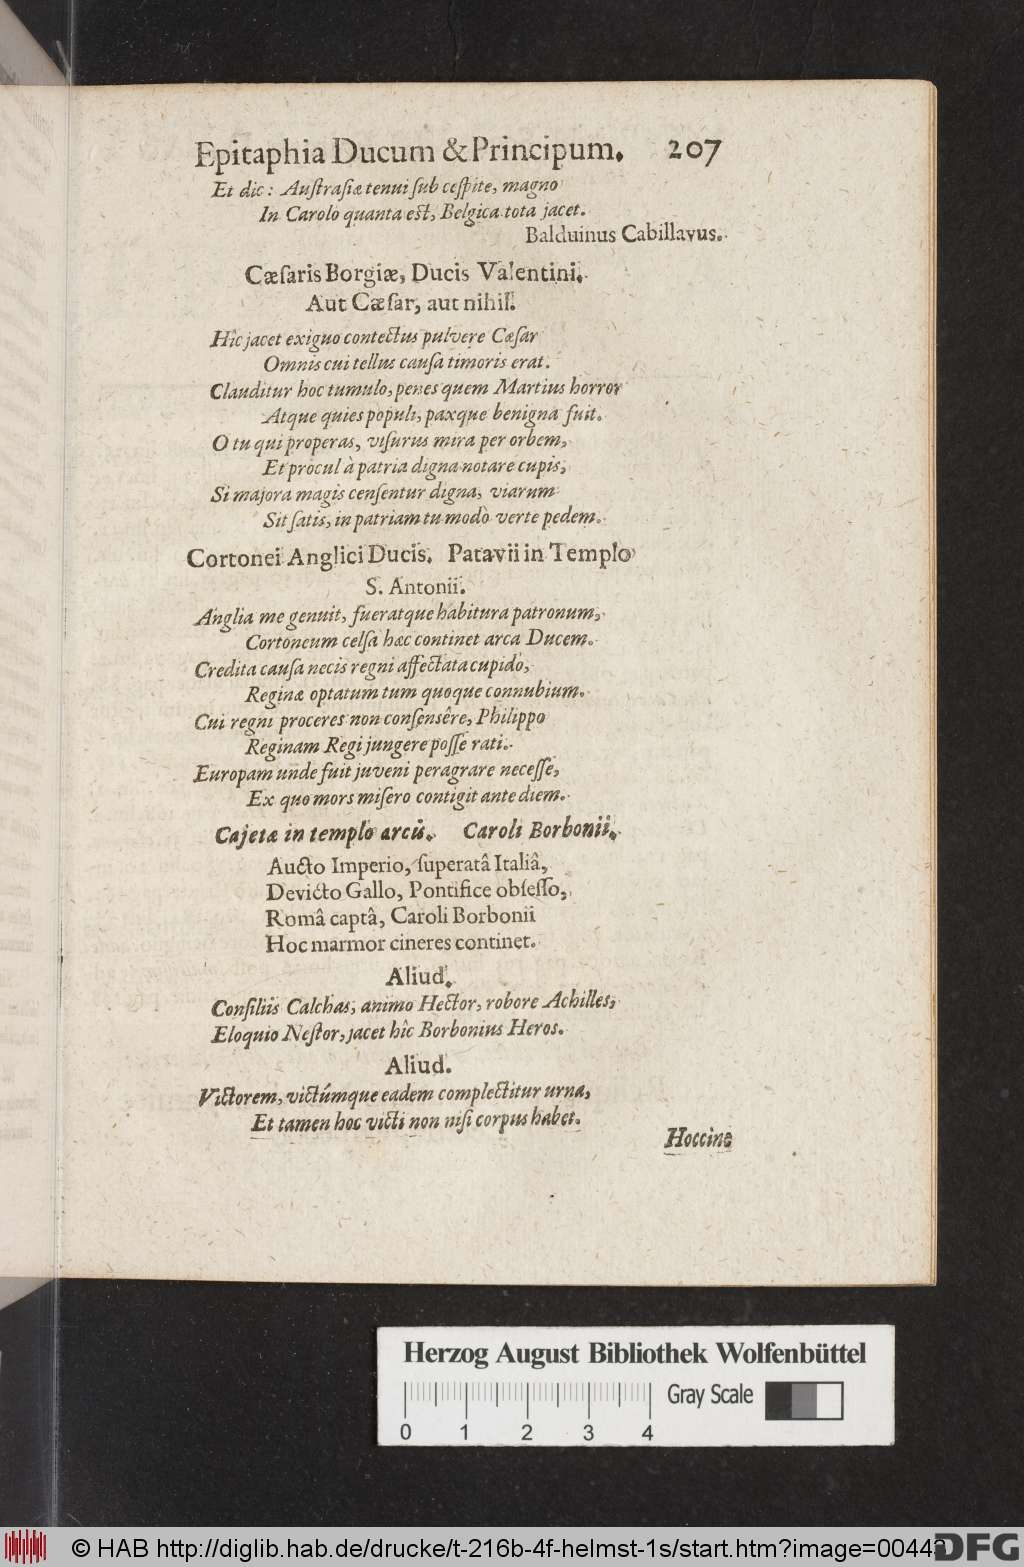 Epitaphia Ducum & Principum. 207
Et dic: Auſtraſiæ tenui ſub ceſpite, magno
In Carolo quanta eſt, Belgica tota jacet.
Balduinus Cabillavus.
Cæſaris Borgiæ, Ducis Valentini.
Aut Cæſar, aut nihil.
Hîc jacet exiguo contectus pulvere Cæſar
Omnis cui tellus cauſa timoris erat.
Clauditur hoc tumulo, penes quem Martius horror
Atque quies populi, paxque benigna fuit.
O tu qui properas, viſurus mira per orbem,
Et procul à patria digna notare cupis,
Si majora magis cenſentur digna, viarum
Sit ſatis, in patriam tu modò verte pedem.
Cortonei Anglici Ducis. Patavii in Templo
S. Antonii.
Anglia me genuit, fueratque habitura patronum,
Cortoneum celſa hæc continet arca Ducem.
Credita cauſa necis regni affectata cupido,
Reginæ optatum tum quoque connubium.
Cui regni proceres non conſensêre, Philippo
Reginam Regi jungere poſſe rati.
Europam unde fuit juveni peragrare neceſſe,
Ex quo mors miſero contigit ante diem.
Cajetæ in templo arcû. Caroli Borbonii.
Aucto Imperio, ſuperatâ Italiâ,
Devicto Gallo, Pontifice obſeſſo,
Româ captâ, Caroli Borbonii
Hoc marmor cineres continet.
Aliud.
Conſiliis Calchas, animo Hector, robore Achilles,
Eloquio Neſtor, jacet hîc Borbonius Heros.
Aliud.
Victorem, victúmque eadem complectitur urna,
Et tamen hoc victi non niſi corpus habet.
Hoccine
Herzog August Bibliothek Wolfenbüttel
Gray Scale
0 1 2 3 4
© HAB http://diglib.hab.de/drucke/t-216b-4f-helmst-1s/start.htm?image=00443
DFG